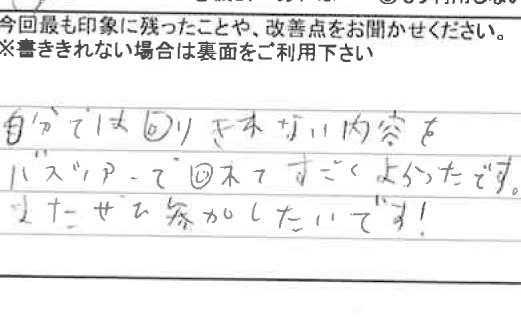 今回最も印象に残ったことや、改善点をお聞かせください。
※書ききれない場合は裏面をご利用下さい
自分では回りきれない内容を
バスツアーで回れてすごくよかったです。
またぜひ参加したいです!